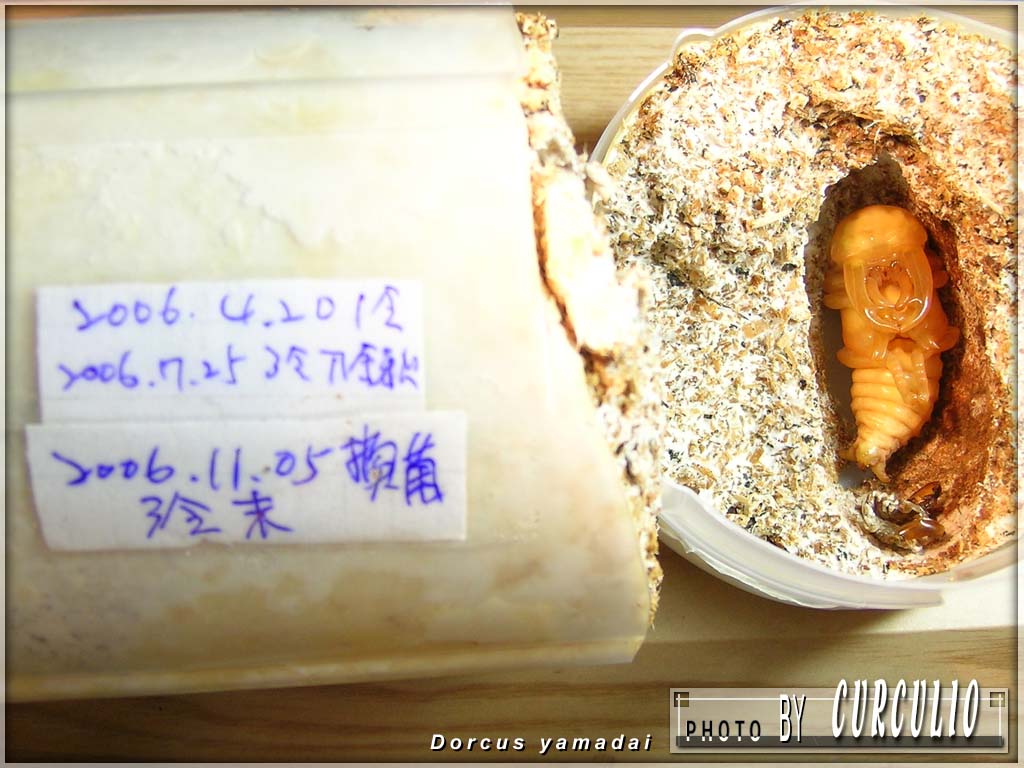 2006.4.20 1令
2006.7.25 3令
2006.11.05 換菌
3令末
Dorcus yamadai
PHOTO BY CURCULIO